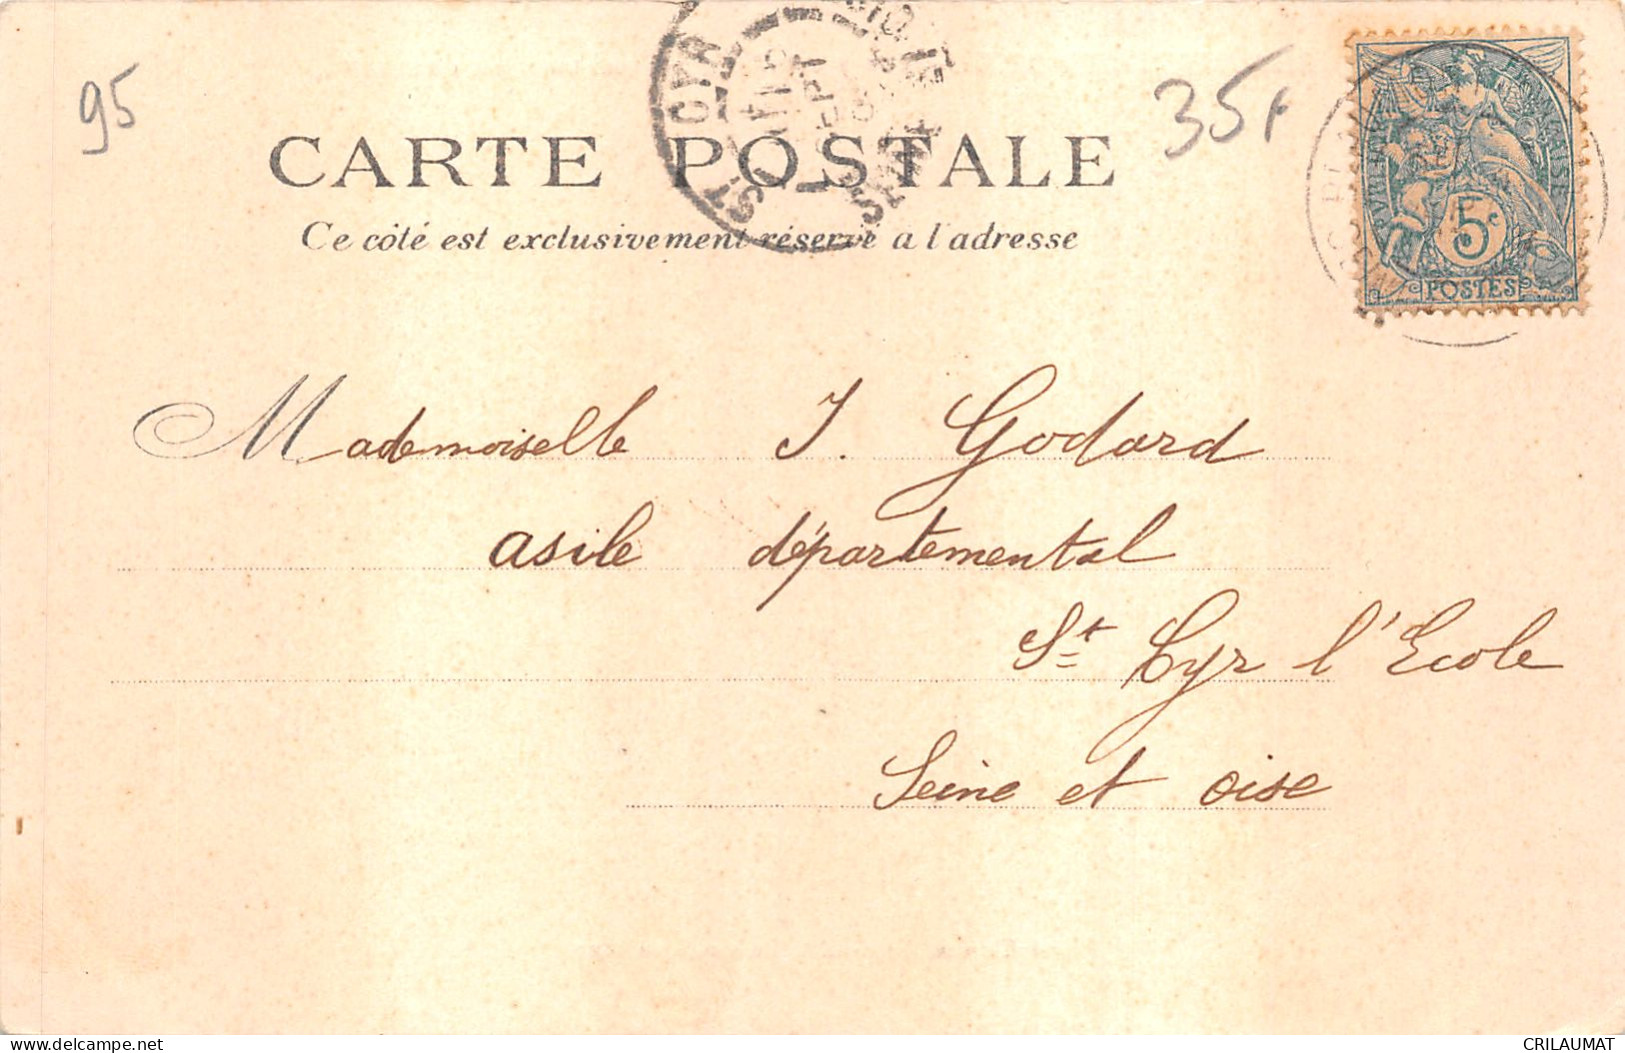 95
35f
CARTE POSTALE
Ce côté est exclusivement réservé a l'adresse
ST CYR
SEPT
POSTES
5c
Mademoiselle J. Godard
asile départemental
St Cyr l'Ecole
Seine et oise
delcampe.net
CRILAUMAT